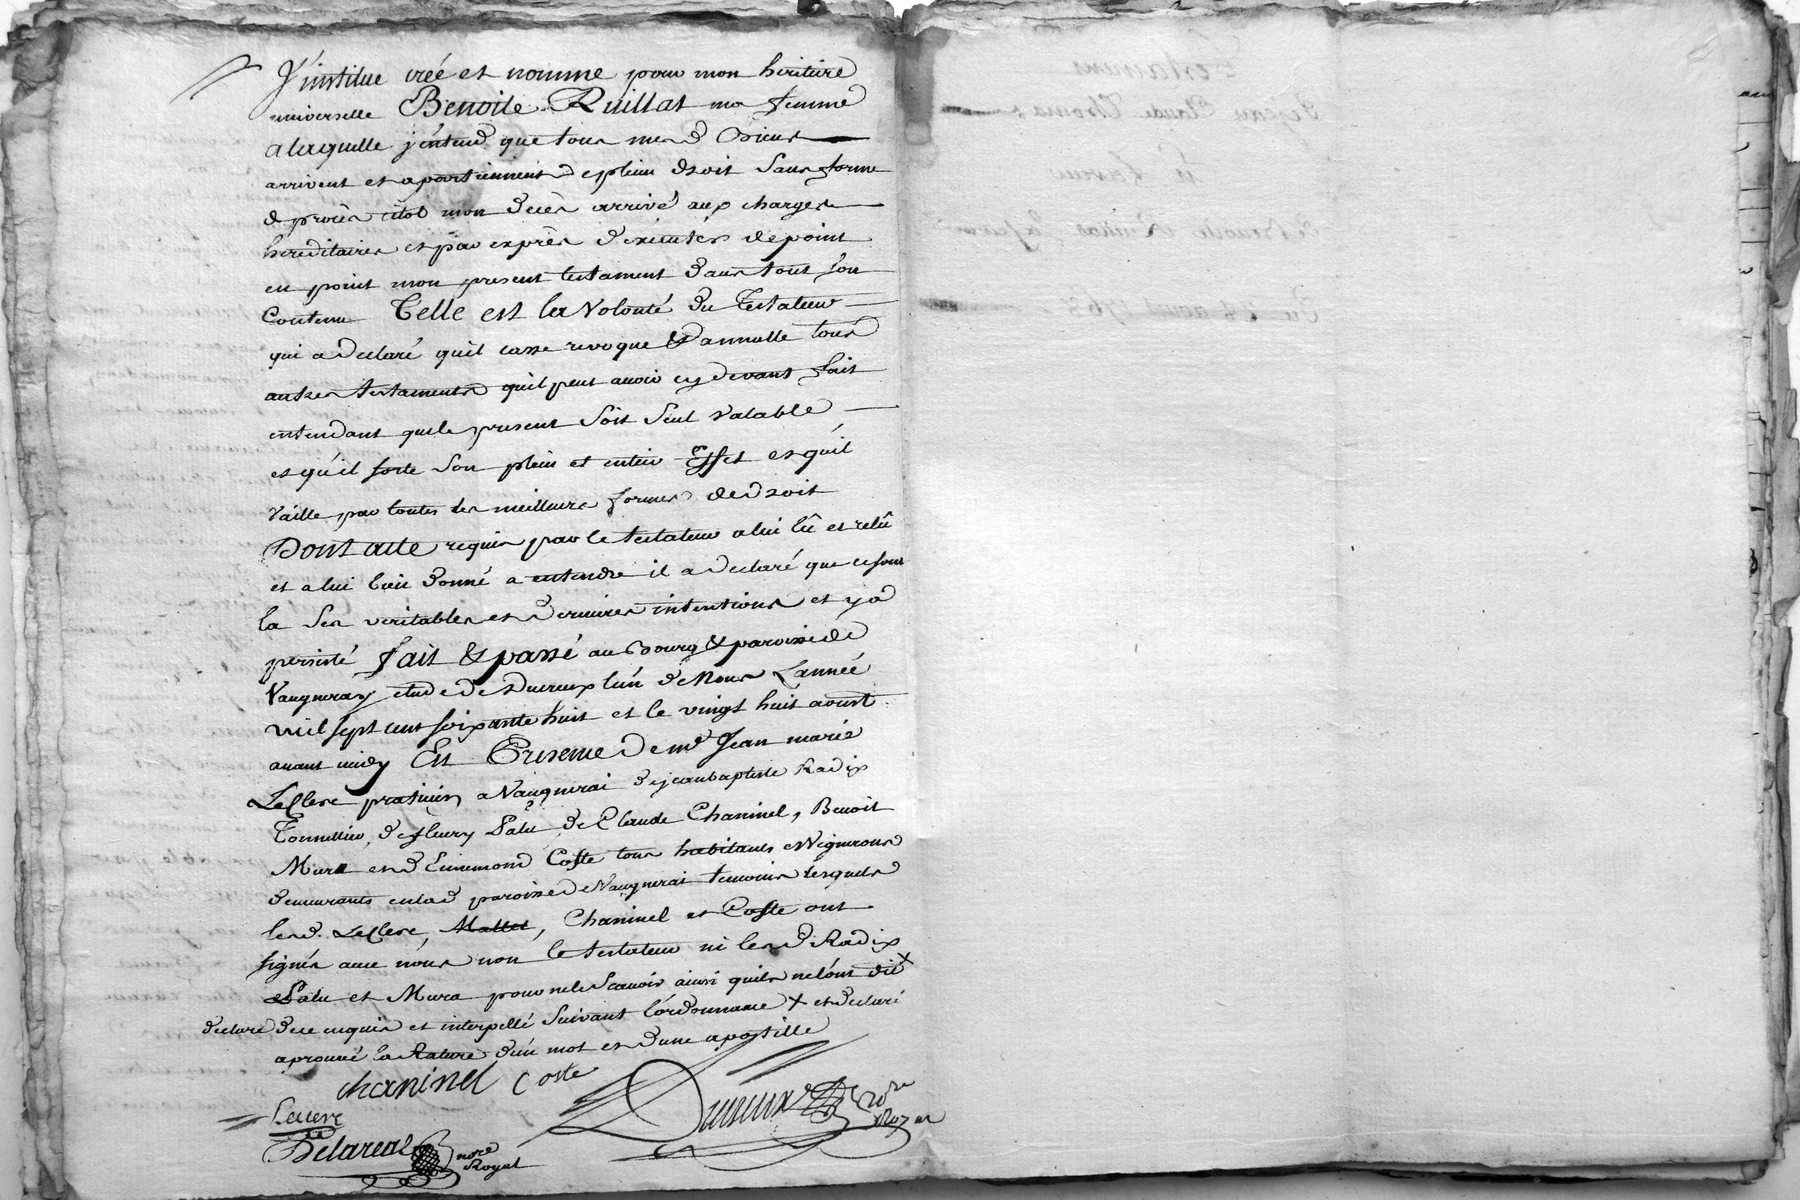 J'institue créé et nomme pour mon heritiere
universelle Benoite Ruillat ma femme
a laquelle j'entend que tous mesd Biens
arrivent et apartiennent de plein droit Sans forme
de procès citot mon decès arrivé aux charges
hereditaires et par exprès d'executer de point
en point mon present testament dans tout son
Contenu Telle est la Volonté du Testateur
qui a declaré quil casse revoque & annulle tous
autres testaments quil peut avoir cy devant fait
entendant que le present Soit Seul Valable
et qu'il sorte Son plein et entier Effet et qu'il
Vaille par toutes les meilleures formes de droit
Dont acte requis par le testateur a lui lû et relû
et a lui bien donné a entendre il a declaré que ce sont
la Ses veritables et dernieres intentions et y a
persisté fait & passé au Bourg & paroisse de
Vaugneray etude de Ducreux l'un de Nous L'année
mil sept cent soixante huit et le vingt huit aoust
avant midy En Presence de me Jean marie
LeClerc praticien a Vaugnerai de jean baptiste Radix
Tonnellier, de fleury Palu de Claude Chaninel, Benoit
Mura et d'Ennemond Coste tous habitants et Vignerons
demeurants en lad paroisse de Vaugnerai temoins lesquels
lesd. LeClerc, Mallet, Chaninel et Coste ont
signés avec nous non le testateur ni lesd Radix
Palu et Mura pour ne le Scavoir ainsi quils ne l'ont dit x
declaré de ce enquis et interpellé Suivant l'ordonnance x et declaré
aprouvé la Rature d'un mot et d'une apostille
chaninel Coste
Leclerc
Ducreux nore
Royal
Delareal nore
Royal
Testament
de jean Claude Thomas
en faveur
de Benoite Ruillat sa femme
Du 28 aoust 1768